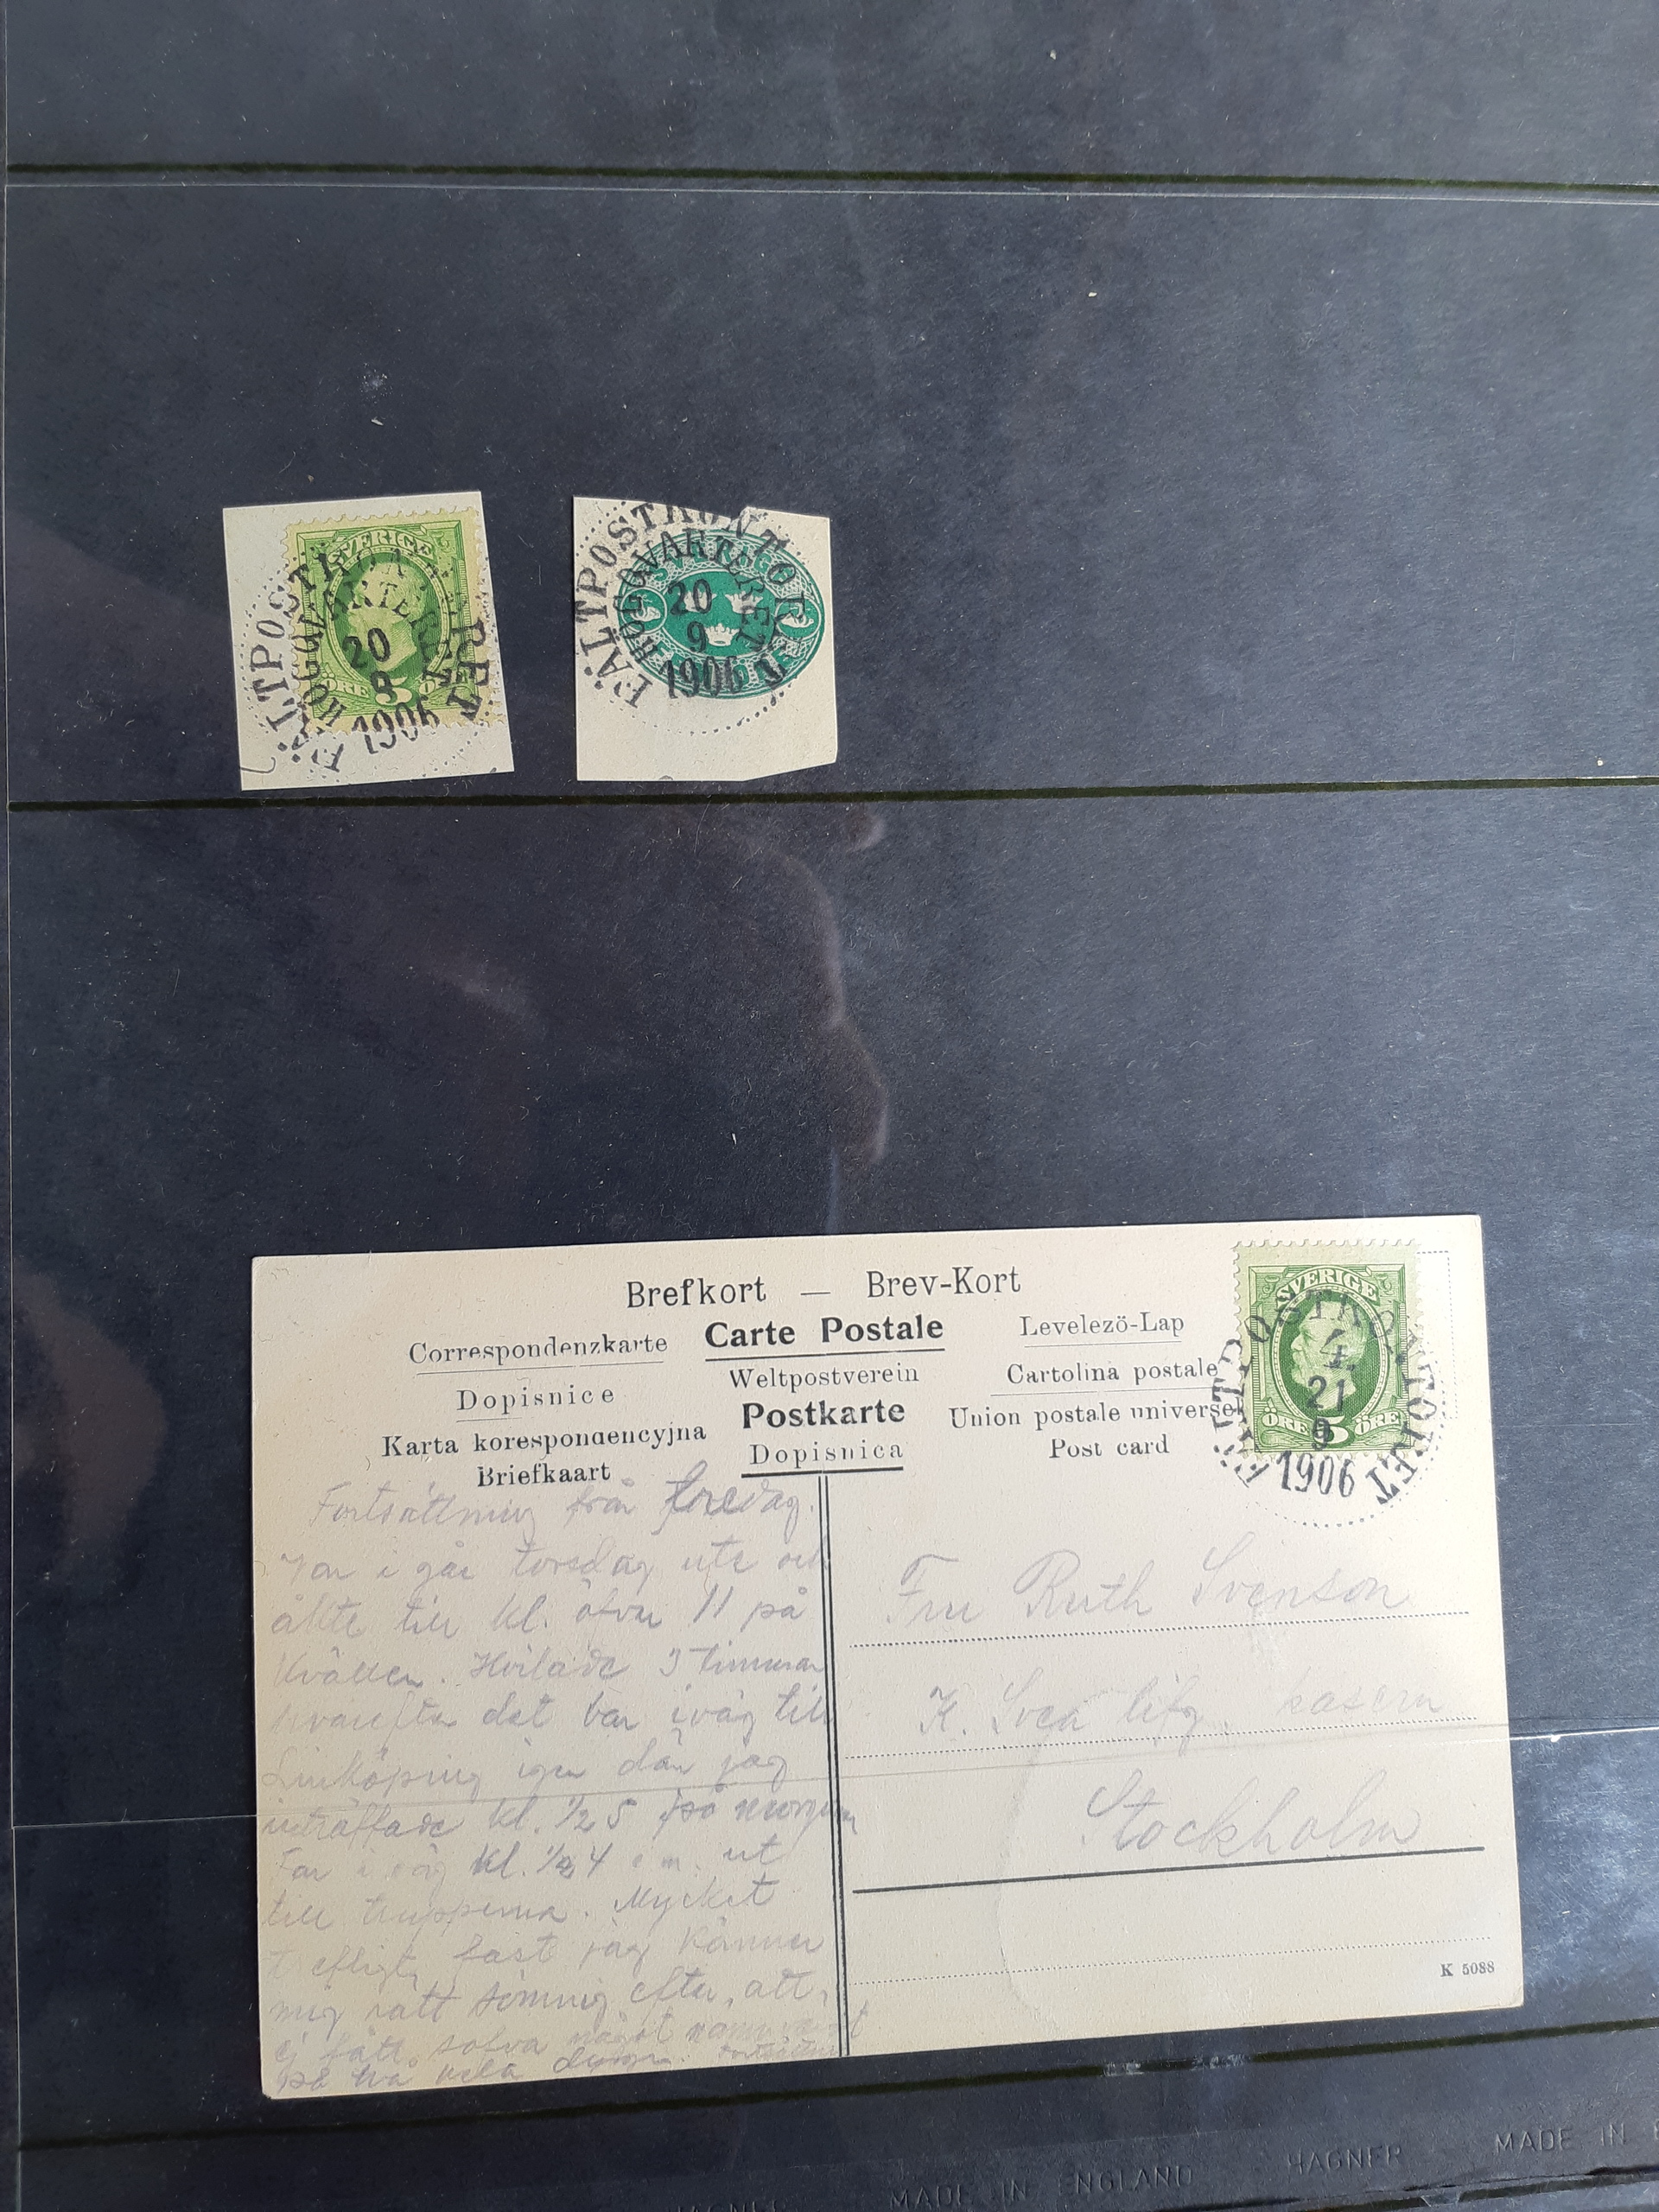 SVERIGE
ÖRE 5 ÖRE
FÄLTPOSTKONTORET
HÖGQVARTERET
20
9
1906
FÄLTPOSTKONTORET
HÖGQVARTERET
20
9
1906
Brefkort — Brev-Kort
Correspondenzkarte
Carte Postale
Levelezö-Lap
Dopisnice
Weltpostverein
Cartolina postale
Karta korespondencyjna
Postkarte
Union postale universel
Briefkaart
Dopisnica
Post card
SVERIGE
ÖRE 5 ÖRE
FÄLTPOSTKONTORET
4.
21
9
1906
Fortsättning från
i går torsdag ute och
åkte till kl. öfver 11 på
kvällen. Hvilade 3 timmar
hvarefter det bar iväg till
Linköping igen där jag
inträffade kl. ½ 5 på morgonen
Far i väg kl. ½ 4 e m. ut
till trupperna. Mycket
trefligt, fast jag känner
mig rätt sömnig efter att
ej fått sofva något
på två hela dygn.
Fru Ruth Svenson
K. Svea lifg. kasern
Stockholm
K 5088
HAGNER MADE IN ENGLAND HAGNER MADE IN